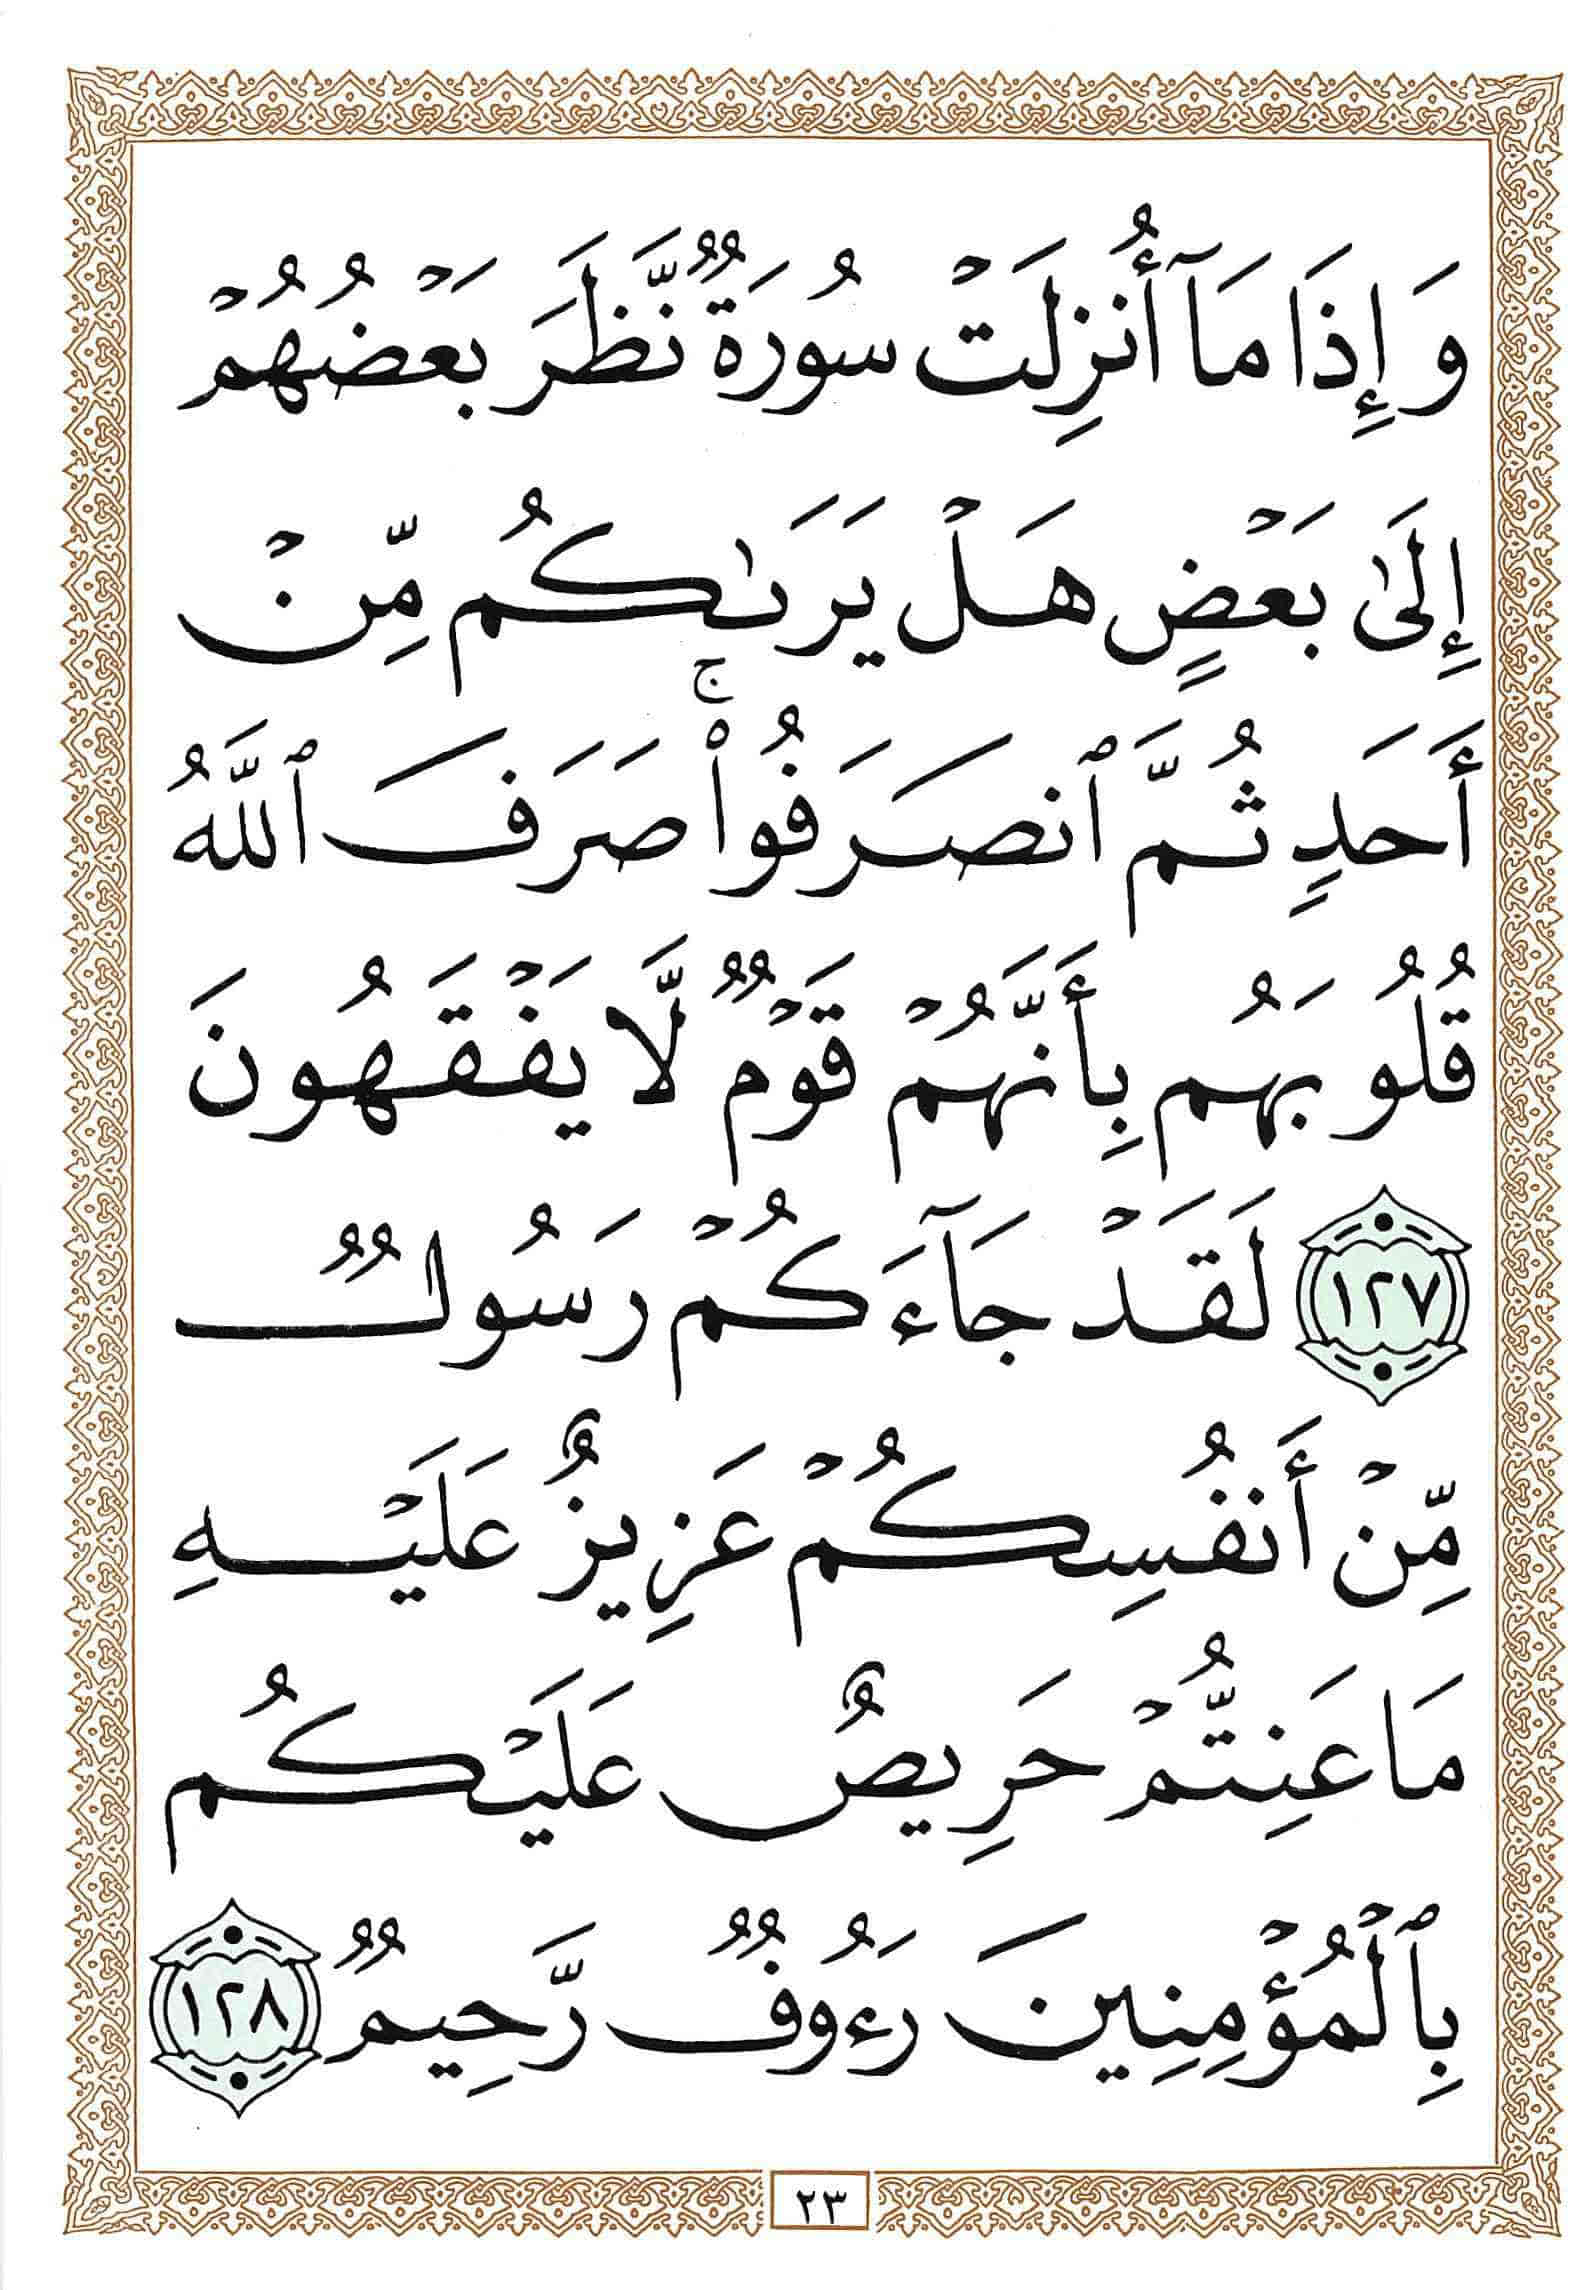 وَإِذَا مَآ أُنزِلَتْ سُورَةٌ نَّظَرَ بَعْضُهُمْ
إِلَىٰ بَعْضٍ هَلْ يَرَىٰكُم مِّنْ
أَحَدٍ ثُمَّ ٱنصَرَفُوا۟ ۚ صَرَفَ ٱللَّهُ
قُلُوبَهُم بِأَنَّهُمْ قَوْمٌ لَّا يَفْقَهُونَ
١٢٧ لَقَدْ جَآءَكُمْ رَسُولٌ
مِّنْ أَنفُسِكُمْ عَزِيزٌ عَلَيْهِ
مَا عَنِتُّمْ حَرِيصٌ عَلَيْكُم
بِٱلْمُؤْمِنِينَ رَءُوفٌ رَّحِيمٌ ١٢٨
٢٣